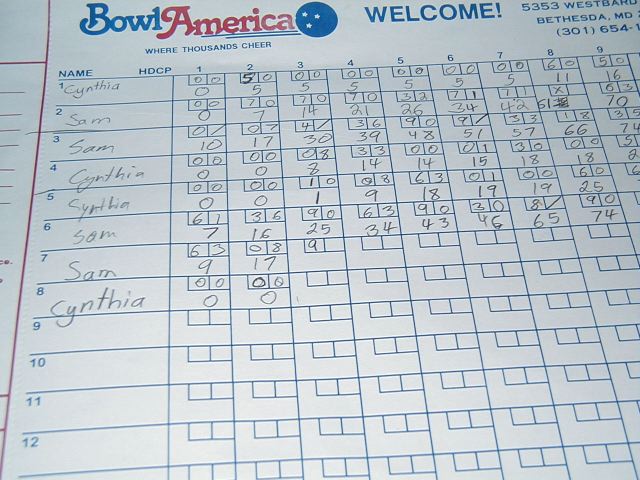 Bowl America
WHERE THOUSANDS CHEER
WELCOME!
5353 WESTBARD
BETHESDA, MD
(301) 654-1
NAME HDCP 1 2 3 4 5 6 7 8 9
1 Cynthia 00 50 00 00 00 00 00 60 50
0 5 5 5 5 5 5 11 16
2 Sam 00 70 70 70 32 71 71 63
0 7 14 21 26 34 42 70
3 Sam 0/ 07 4/ 36 90 9/ 33 18 35
10 17 30 39 48 51 57 66 74
4 Cynthia 00 00 08 33 00 01 30 00
0 0 8 14 14 15 18 18
5 Synthia 00 00 10 08 63 01 00 60
0 0 1 9 18 19 19 25
6 Sam 61 36 90 63 90 30 8/ 90
7 16 25 34 43 46 65 74
7 Sam 63 08 9
9 17
8 Cynthia 00 00
0 0
9
10
11
12